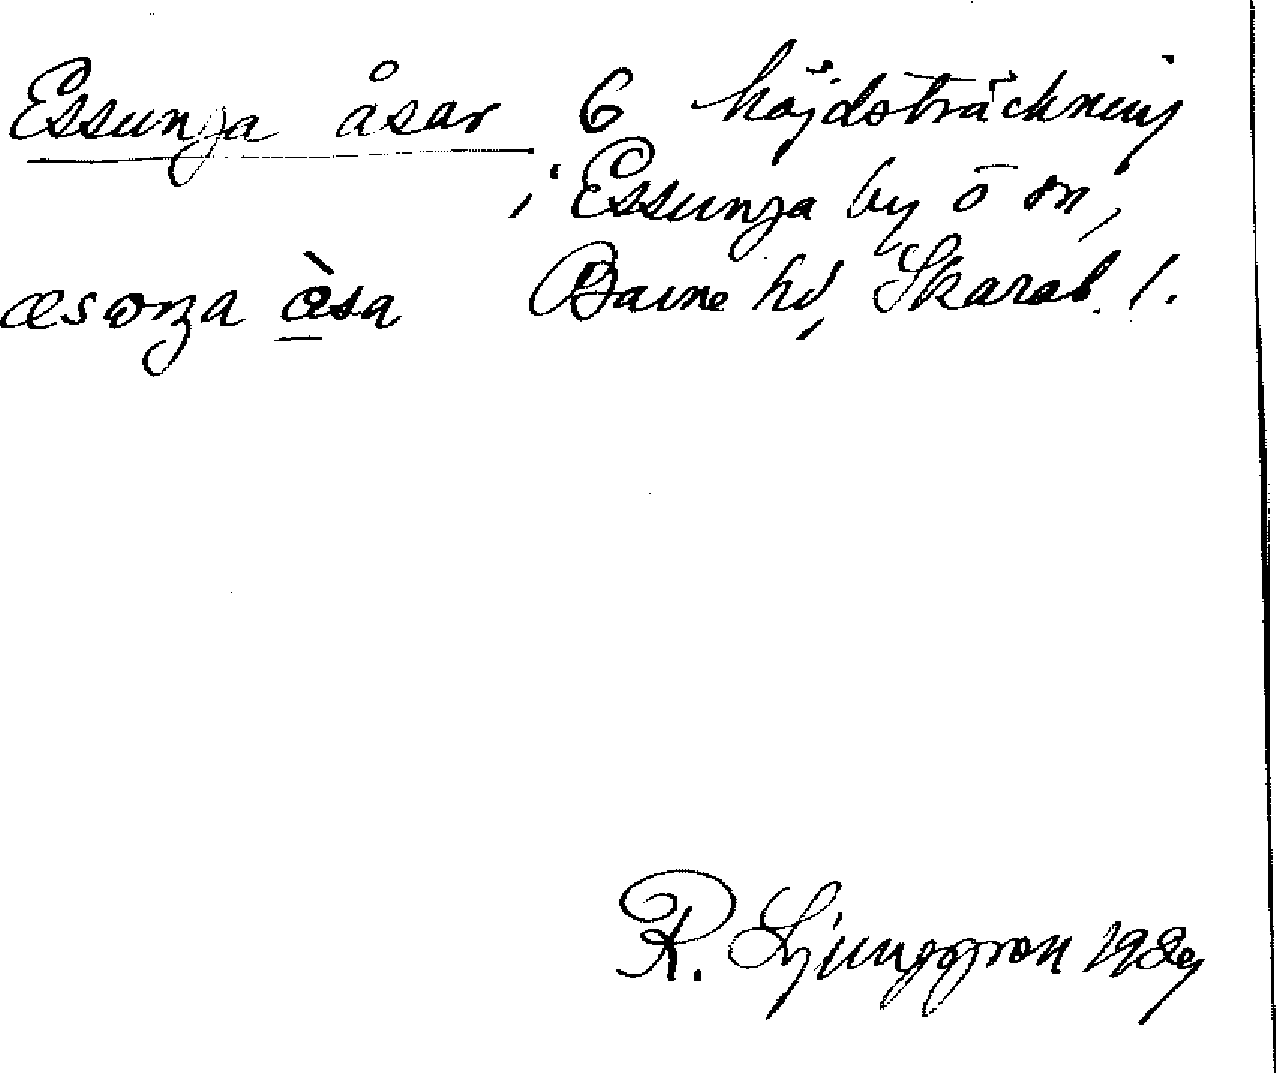 Essunga åsar 6 höjdsträckning
i Essunga by o sn,
æsoŋa åsa Barne hd, Skarab. l.
R. Ljunggren 1989